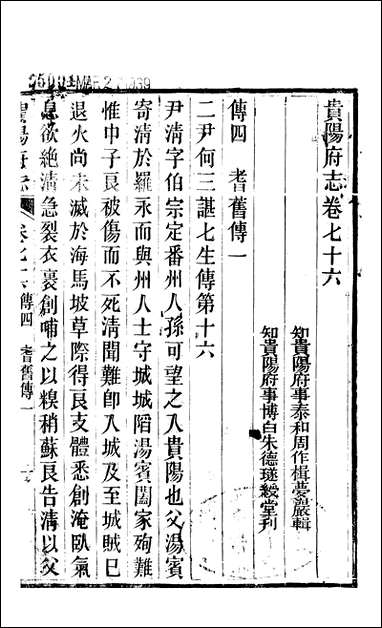 貴陽府志卷七十六
知貴陽府事泰和周作楫夢巖輯
知貴陽府事博白朱德璲綬堂刊
傳四 耆舊傳一
二尹何三諶七生傳第十六
尹淸字伯宗定番州人孫可望之入貴陽也父湯賓
寄淸於羅永而與州人士守城城陷湯賓闔家殉難
惟中子良被傷而不死淸聞難卽入城及至城賊已
退火尚未滅於海馬坡草際得良支體悉創淹臥氣
息欲絶淸急裂衣裹創哺之以糗稍蘇良告淸以父
傳四 耆舊傳一